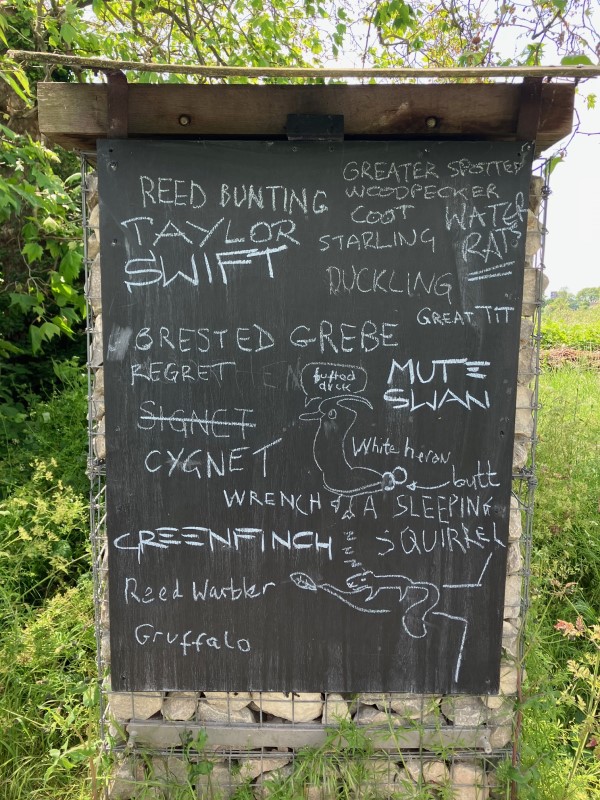 REED BUNTING
TAYLOR
SWIFT
GREATER SPOTTED
WOODPECKER
COOT
WATER
RATS
STARLING
DUCKLING
GREAT TIT
CRESTED GREBE
REGRET
tufted
duck
MUTE
SWAN
SIGNET
CYGNET
White heron
butt
WRENCH
A SLEEPING
SQUIRREL
GREENFINCH
z z z z
Reed Warbler
Gruffalo